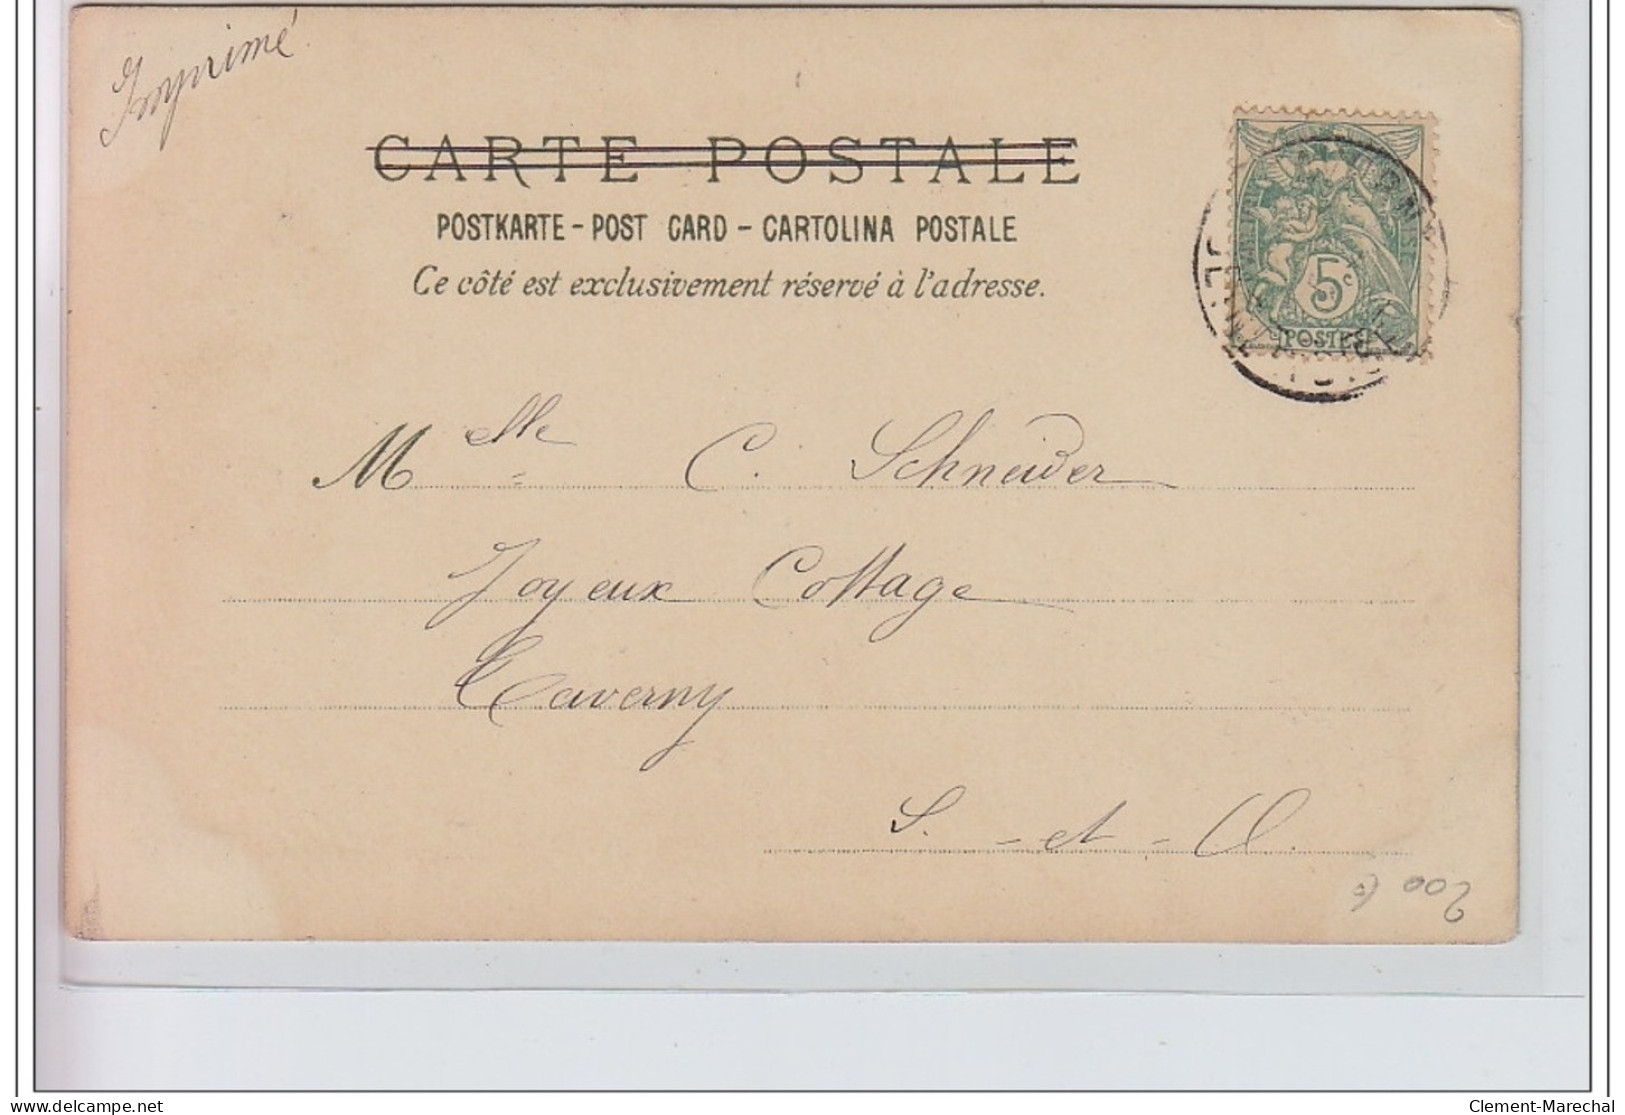 Imprimé
CARTE POSTALE
POSTKARTE - POST CARD - CARTOLINA POSTALE
Ce côté est exclusivement réservé à l'adresse.
5c
POSTES
Melle C. Schneider
Joyeux Cottage
Taverny
S. - et - O.
200
delcampe.net
Clement-Marechal